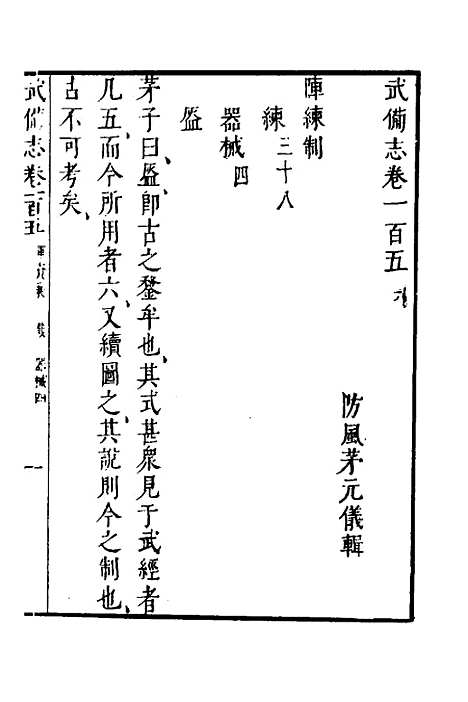 武備志卷一百五
防風茅元儀輯
陣練制
練三十八
器械四
盔
茅子曰、盔卽古之鍪牟也、其式甚衆見于武經者
凡五、而今所用者六、又續圖之、其說則今之制也、
古不可考矣、
武備志卷一百五 器械四 一